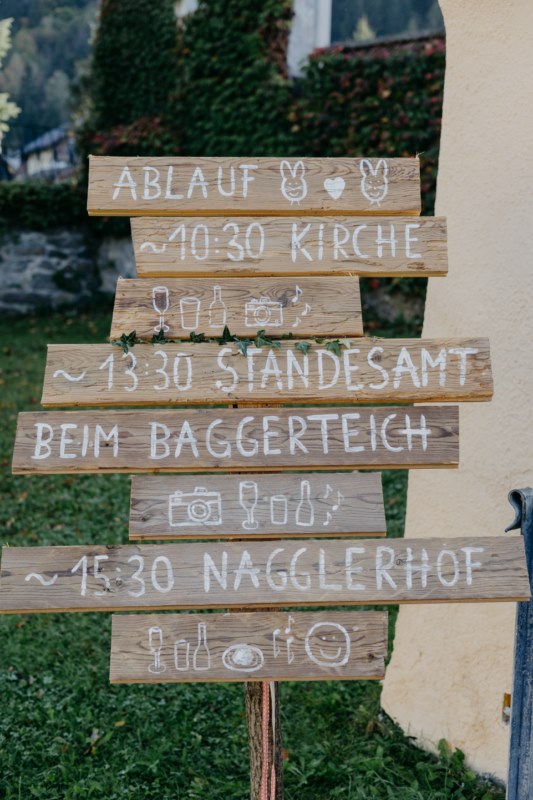 ABLAUF
~10:30 KIRCHE
~13:30 STANDESAMT
BEIM BAGGERTEICH
~15:30 NAGGLERHOF